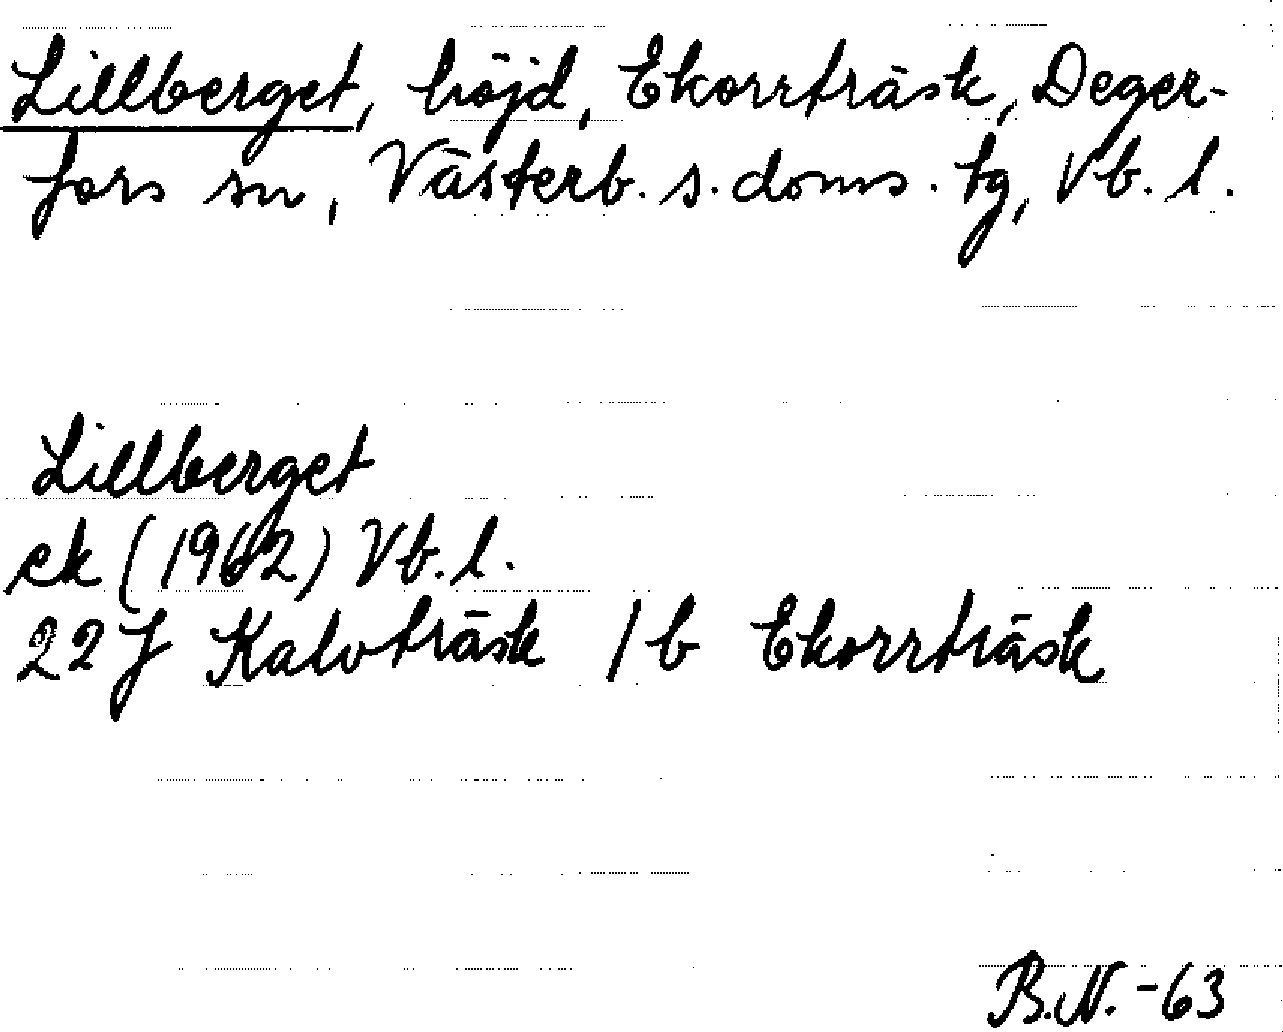 Lillberget, höjd, Ekorrträsk, Deger-
fors sn, Västerb. s. doms. tg, Vb. l.
Lillberget
ek (1962) Vb. l.
22 J Kalvträsk 1 b Ekorrträsk
B.N. -63